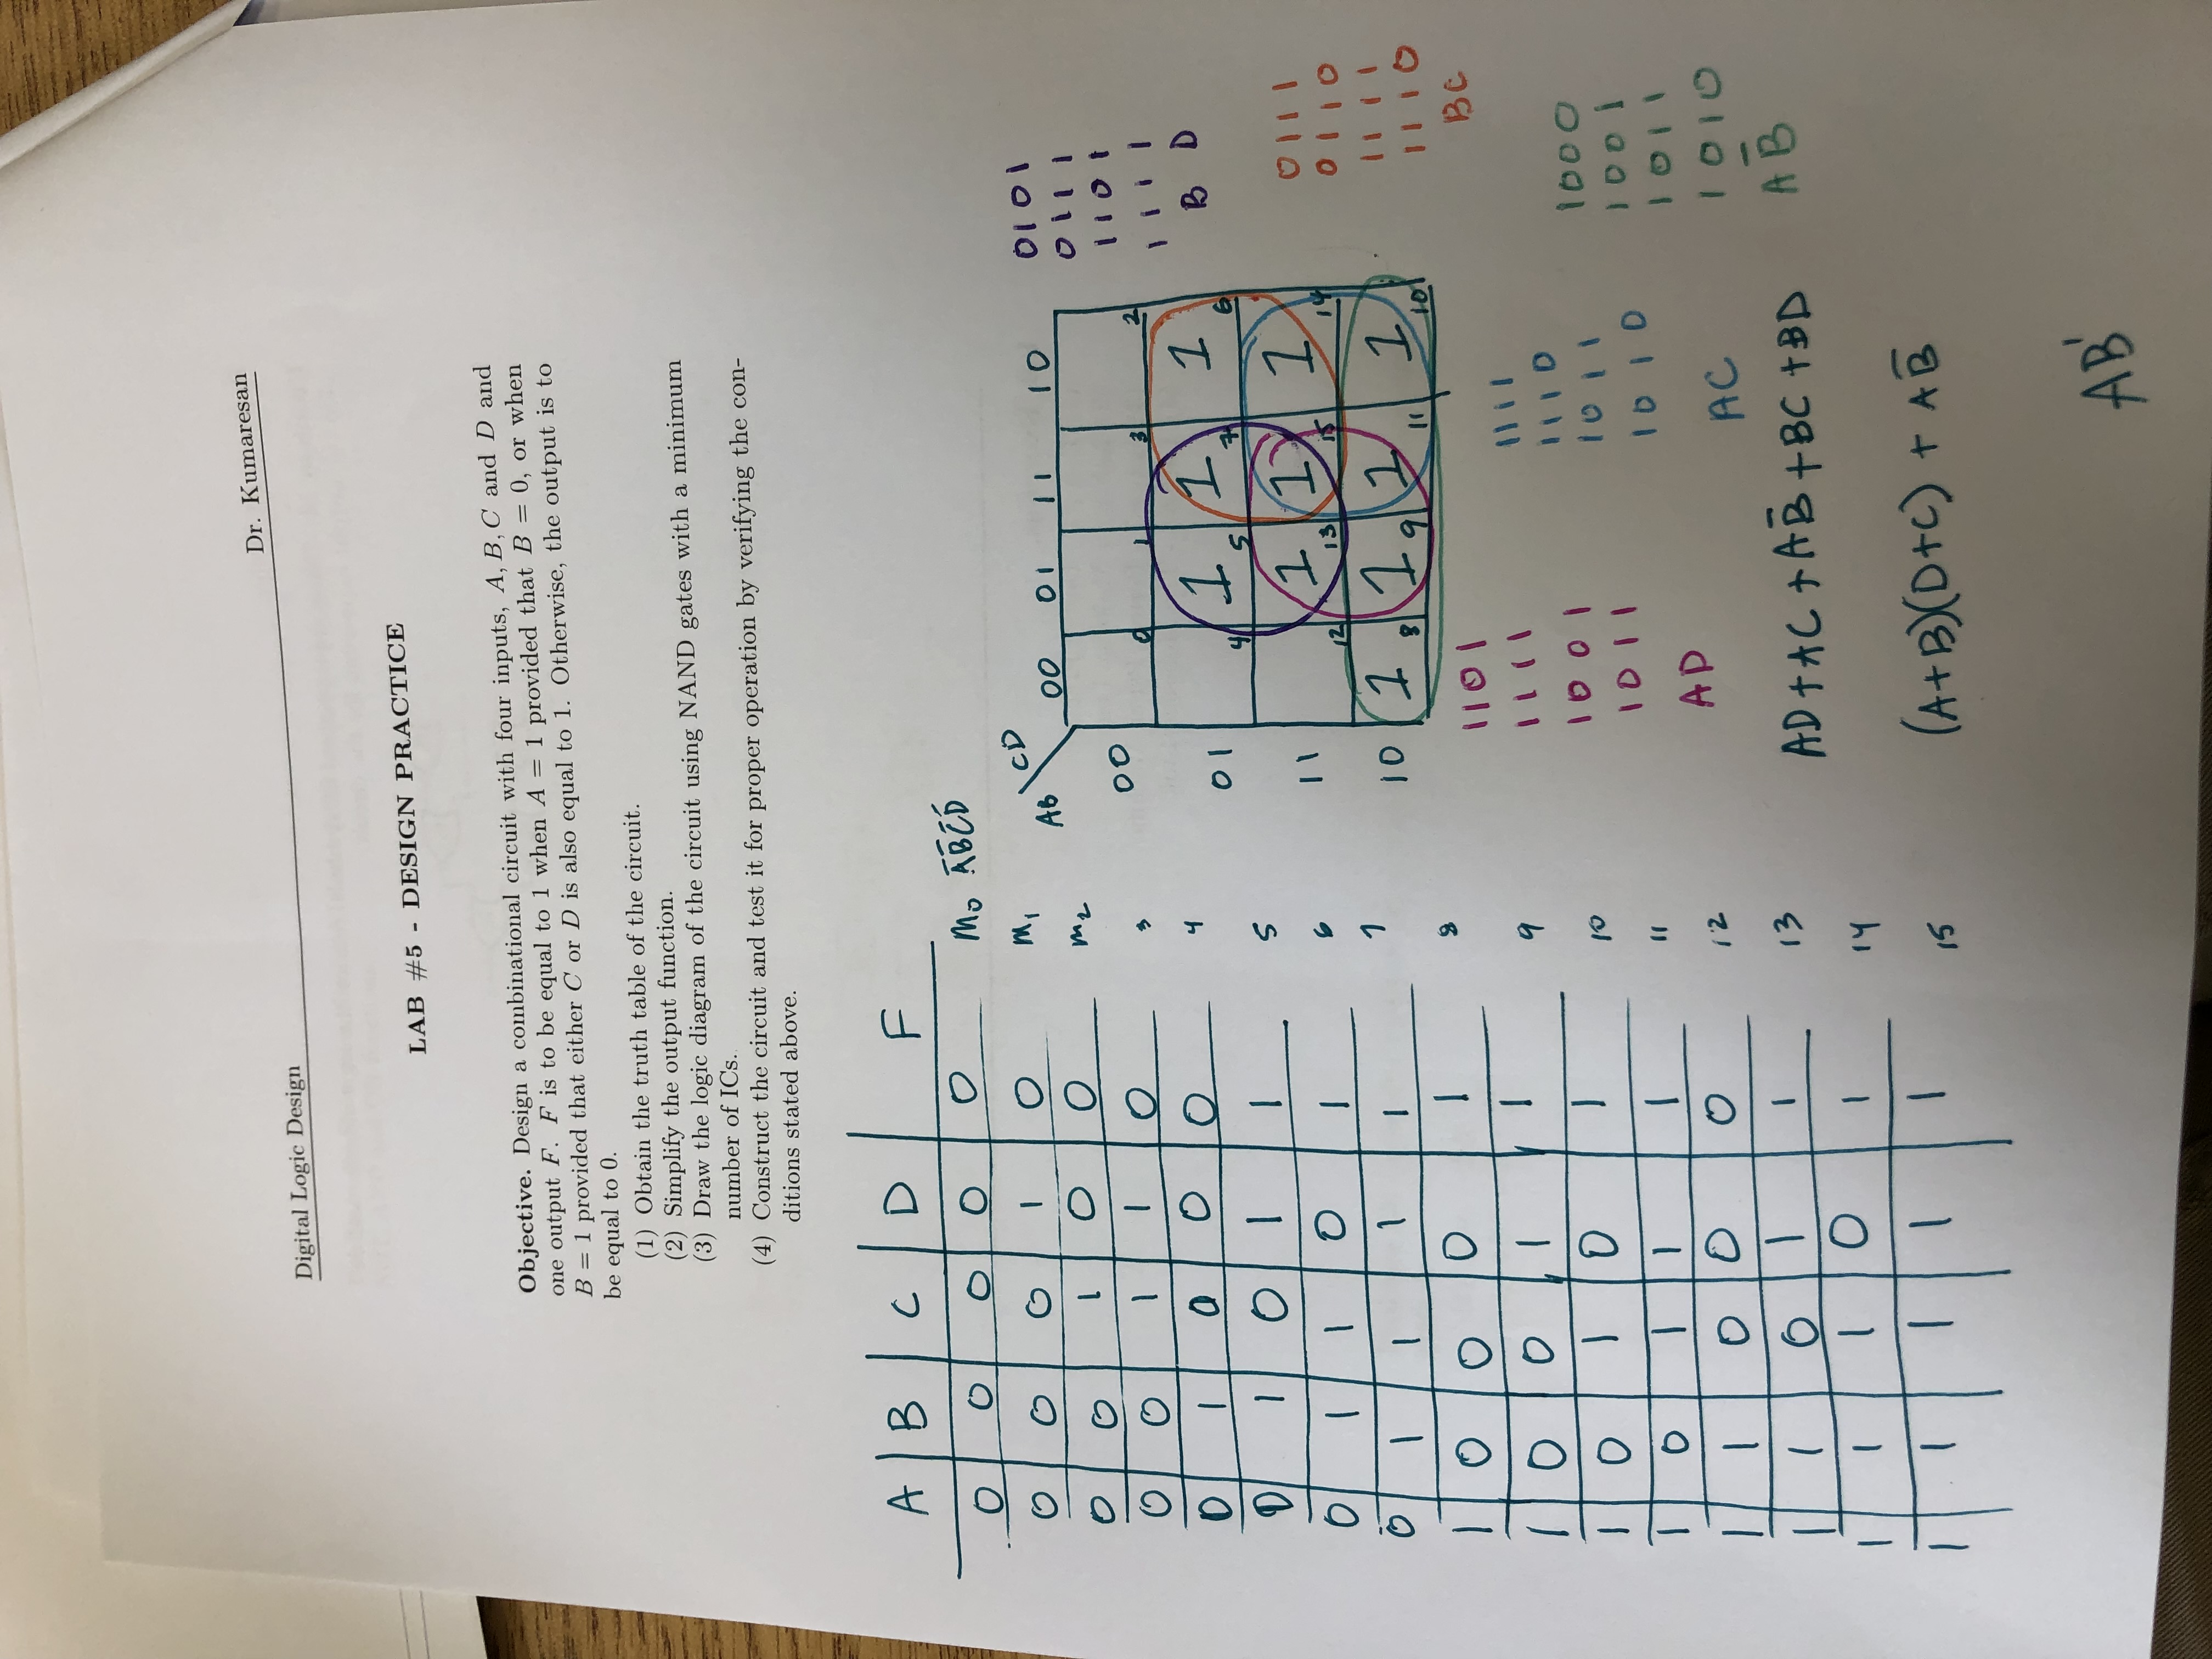 Digital Logic Design Dr. Kumaresan
LAB #5 - DESIGN PRACTICE
Objective. Design a combinational circuit with four inputs, A, B, C and D and
one output F. F is to be equal to 1 when A = 1 provided that B = 0, or when
B = 1 provided that either C or D is also equal to 1. Otherwise, the output is to
be equal to 0.
(1) Obtain the truth table of the circuit.
(2) Simplify the output function.
(3) Draw the logic diagram of the circuit using NAND gates with a minimum
number of ICs.
(4) Construct the circuit and test it for proper operation by verifying the con-
ditions stated above.
A B C D F
0 0 0 0 0 m0 A̅B̅C̅D̅
0 0 0 1 0 m1
0 0 1 0 0 m2
0 0 1 1 0 3
0 1 0 0 0 4
0 1 0 1 1 5
0 1 1 0 1 6
0 1 1 1 1 7
1 0 0 0 1 8
1 0 0 1 1 9
1 0 1 0 1 10
1 0 1 1 1 11
1 1 0 0 0 12
1 1 0 1 1 13
1 1 1 0 1 14
1 1 1 1 1 15
AB CD
00 01 11 10
00 0 1 3 2
01 4 1 5 1 7 1 6
11 12 1 13 1 15 1 14
10 1 8 1 9 1 11 1 10
0101
0111
1101
1111
B D
0111
0110
1111
1110
BC
1101
1111
1001
1011
AD
1111
1110
1011
1010
AC
1000
1001
1011
1010
AB̅
AD + AC + AB̅ + BC + BD
(A+B)(D+C) + AB̅
AB'